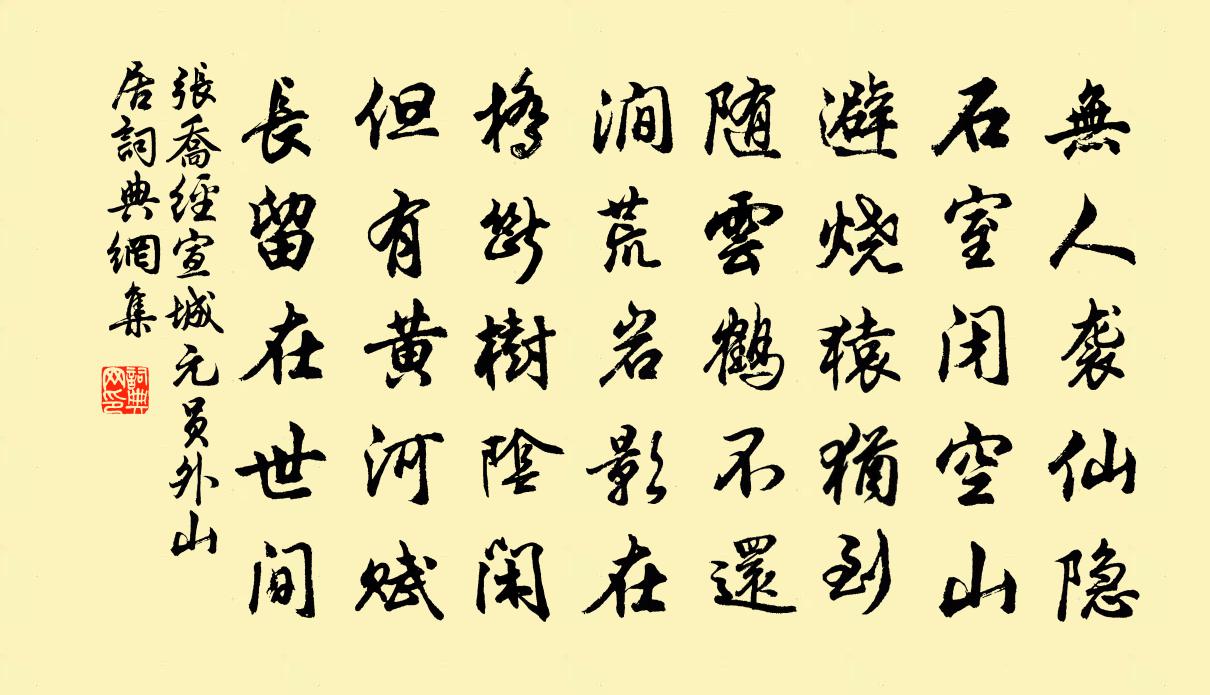 無人袭仙隐
石室闭空山
避烧猿猶到
随雲鶴不還
澗荒岩影在
橋斷樹陰閑
但有黄河赋
長留在世间
張喬經宣城元员外山
居詞典網集
詞典
网印